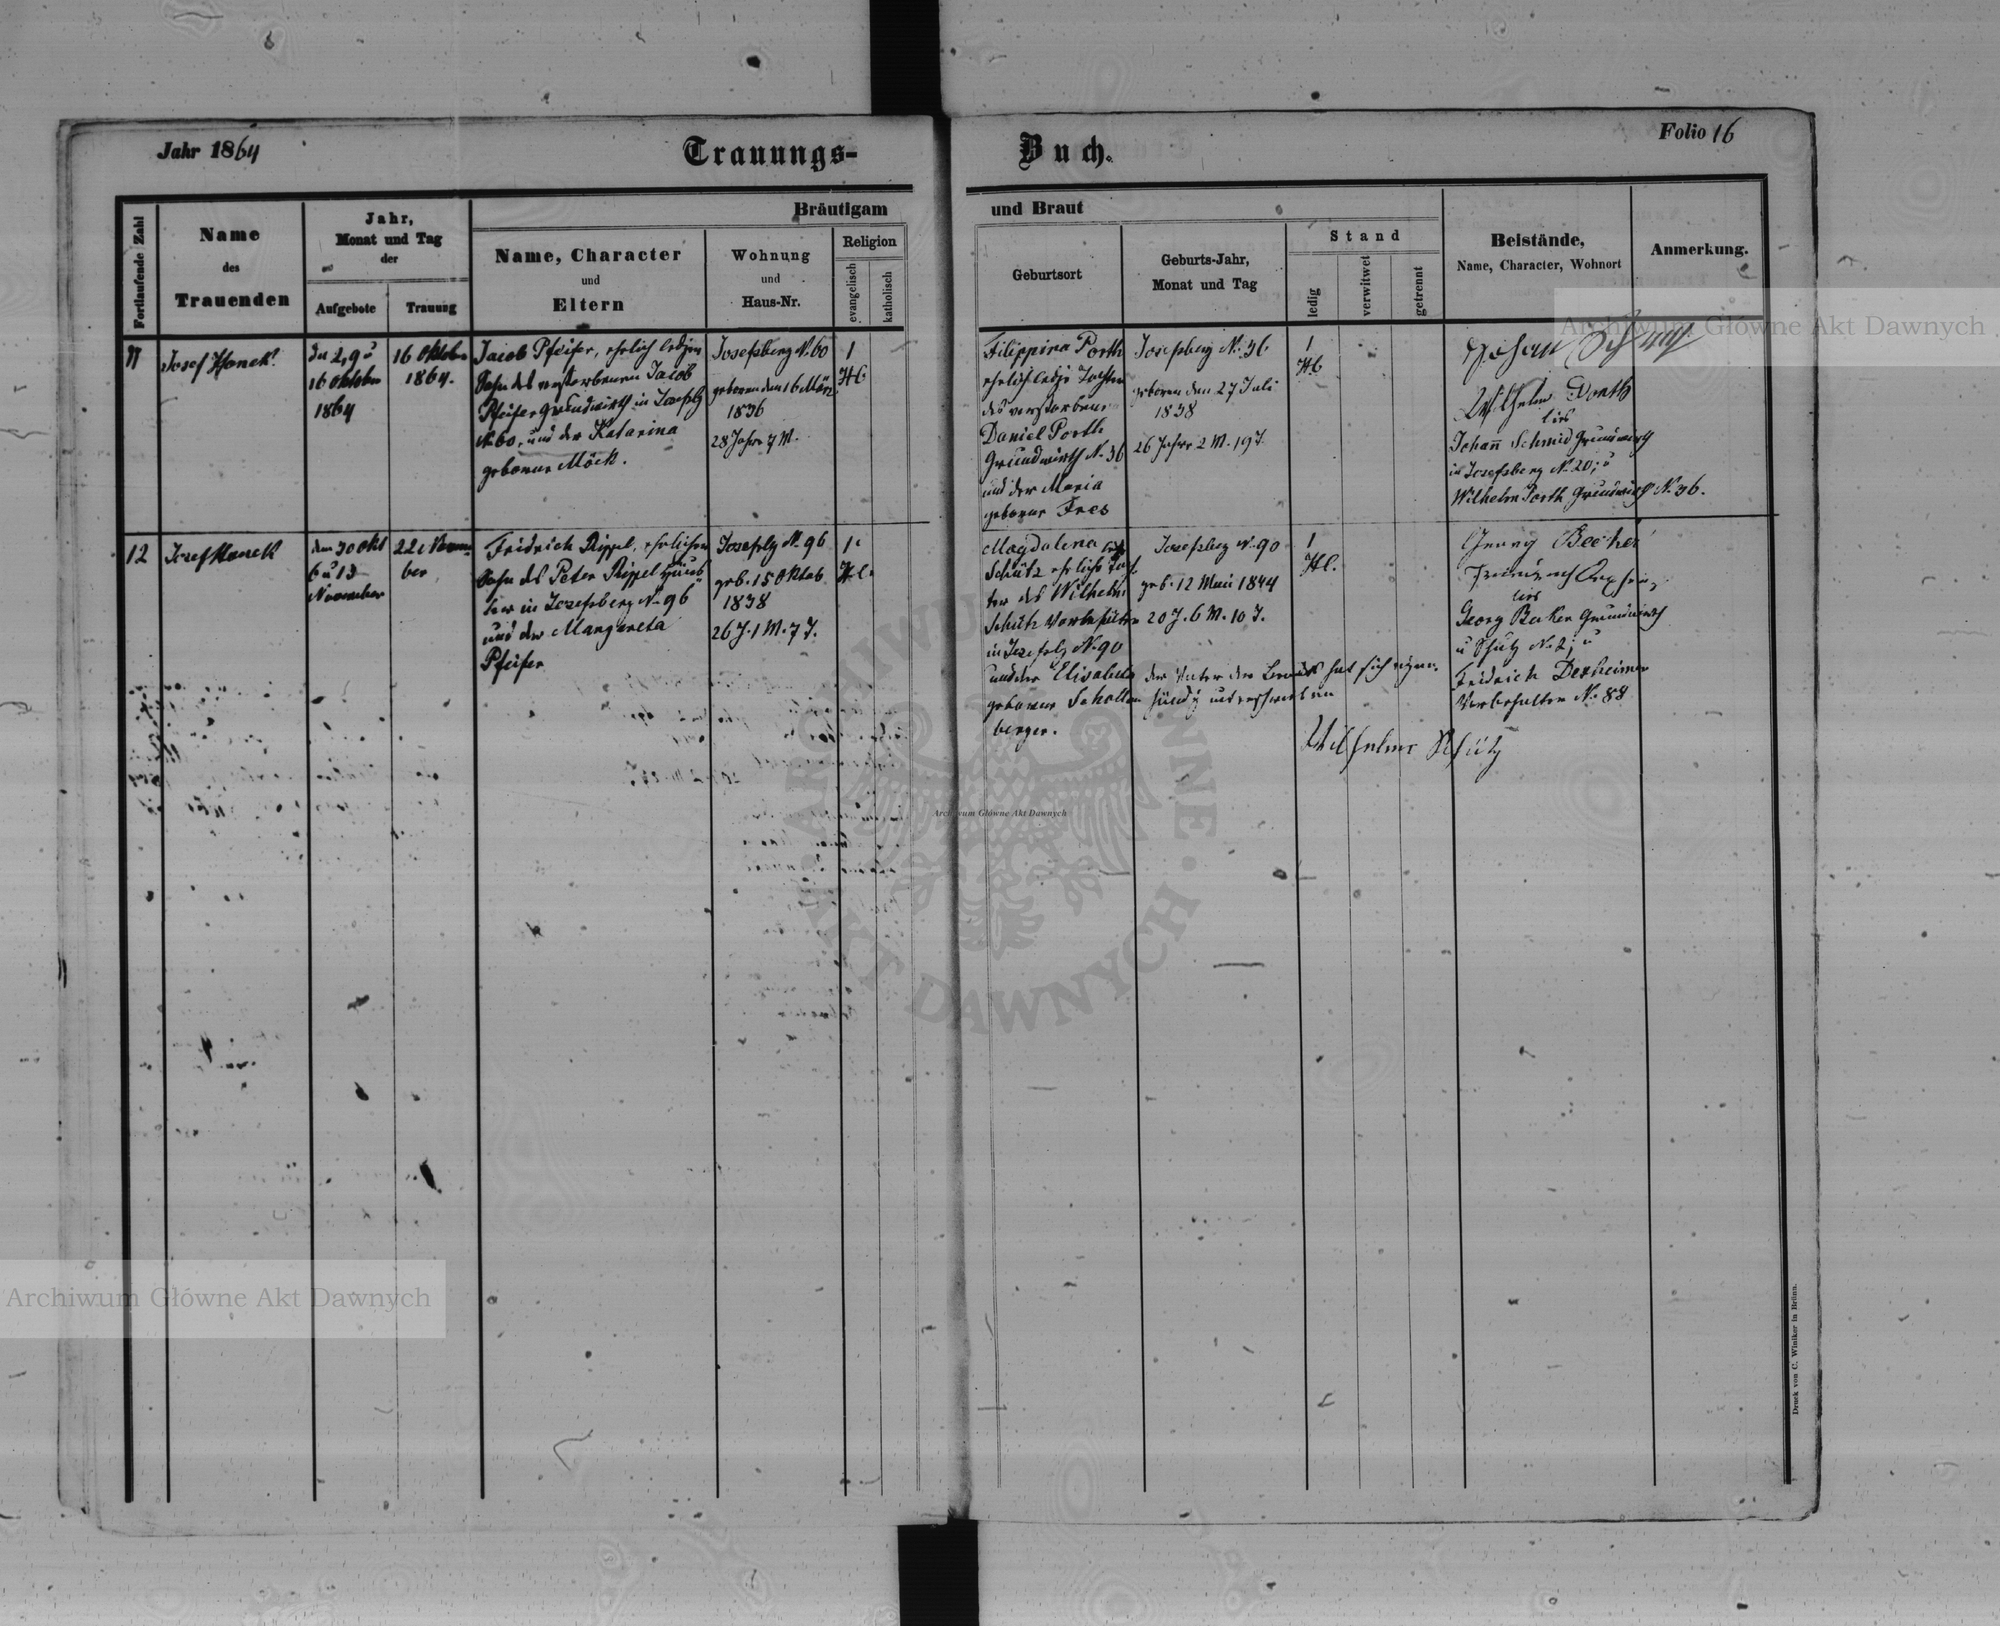 Jahr 1864
Trauungs-
Buch.
Folio 16
Fortlaufende Zahl
Name
des
Trauenden
Jahr,
Monat und Tag
der
Aufgebote
Trauung
Bräutigam
Name, Character
und
Eltern
Wohnung
und
Haus-Nr.
Religion
evangelisch
katholisch
und Braut
Geburtsort
Geburts-Jahr,
Monat und Tag
Stand
ledig
verwitwet
getrennt
Beistände,
Name, Character, Wohnort
Anmerkung.
11
Josef Hanek
Den 2, 9 u
16 Oktober
1864
16 Oktober
1864.
Jacob Pfeifer, ehelich lediger
Sohn des verstorbenen Jacob
Pfeifer Grundwirth in Josefsbg
No 60, und der Katarina
geborene Möck.
Josefsberg No. 60
geboren den 16 März
1836
28 Jahre 7 M.
1
H.C.
Filippina Porth
ehelich ledige Tochter
des verstorbenen
Daniel Porth
Grundwirth No. 36
und der Maria
geborene Fres
Josefsberg No. 36
geboren den 27 Juli
1838
26 Jahre 2 M. 19 T.
1
H.C.
Johan Schmit
Wilhelm Porth
Johann Schmid Grundwirth
in Josefsberg No. 20; u
Wilhelm Porth Grundwirth No. 36.
12
Josef Hanek
den 30 Okt
6 u 13
November
22 Novem
ber
Fridrich Rippel, ehelicher
Sohn des Peter Rippel Häus
ler in Josefsberg No. 96
und der Margareta
Pfeifer
Josefsbg No. 96
geb. 15 Oktob.
1838
26 J. 1 M. 7 T.
1
H.C.
Magdalena
Schütz eheliche Toch
ter des Wilhelm
Schütz Vorbehalter
in Josefsbg No. 90
und der Elisabeta
geborene Schollen
berger.
Josefsberg No. 90
geb. 12 Mai 1844
20 J. 6 M. 10 T.
1
H.C.
der Vater der Braut hat sich eigen-
händig unterschrieben
Wilhelm Schütz
Georg Becker
Georg Beker Grundwirth
u Schütz No. 2; u
Fridrich Dexheimer
Vorbehalter No. 88
Druck von C. Winiker in Brünn.
Archiwum Główne Akt Dawnych
Archiwum Główne Akt Dawnych
Archiwum Główne Akt Dawnych
ARCHIWUM GŁÓWNE AKT DAWNYCH